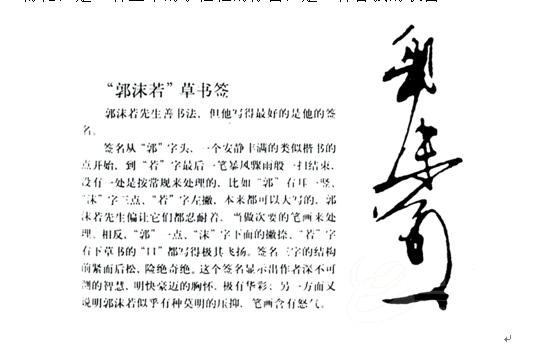 “郭沫若”草书签
郭沫若先生善书法，但他写得最好的是他的签
名。
签名从“郭”字头，一个安静丰满的类似楷书的
点开始，到“若”字最后一笔暴风骤雨般一扫结束，
没有一处是按常规来处理的，比如“郭”右耳一竖，
“沫”字三点、“若”字左撇，本来都可以大写的，郭
沫若先生偏让它们都忍耐着，当做次要的笔画来处
理，相反，“郭”一点、“沫”字下面的撇捺、“若”字
右下草书的“口”都写得极其飞扬。签名三字的结构
前紧而后松，险绝奇绝。这个签名显示出作者深不可
测的智慧，明快豪迈的胸怀，极有华彩；另一方面又
说明郭沫若似乎有种莫明的压抑，笔画含有怒气。
郭沫若